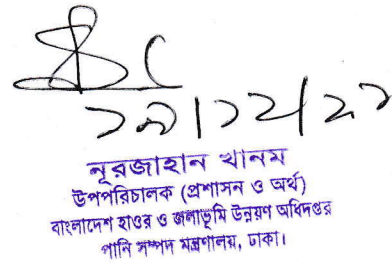 নূরজাহান খানম
উপপরিচালক (প্রশাসন ও অর্থ)
বাংলাদেশ হাওর ও জলাভূমি উন্নয়ণ অধিদপ্তর
পানি সম্পদ মন্ত্রণালয়, ঢাকা।